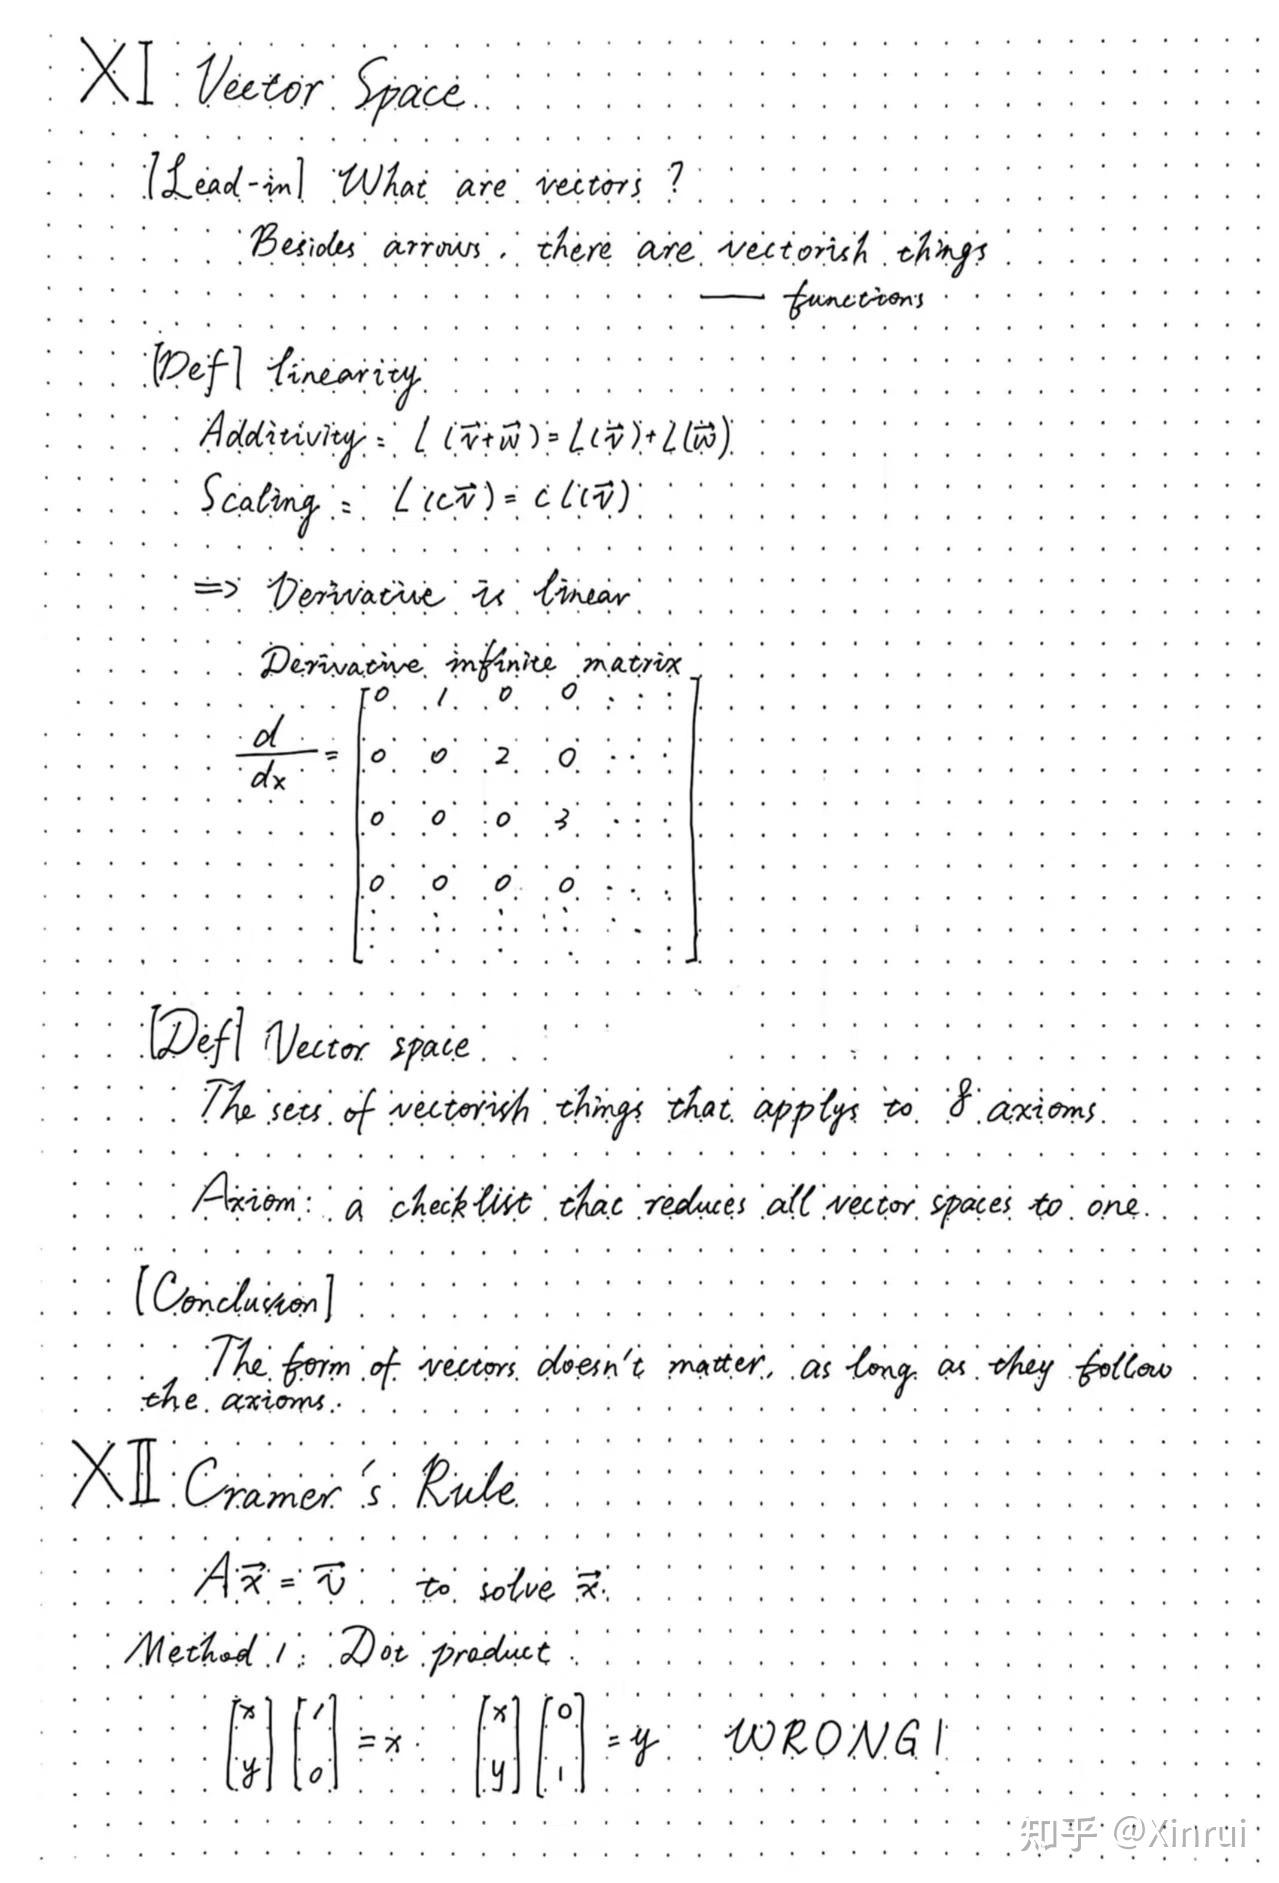 XI Vector Space
[Lead-in] What are vectors?
Besides arrows, there are vectorish things
— functions
[Def] linearity
Additivity: L(v⃗+w⃗)=L(v⃗)+L(w⃗)
Scaling: L(cv⃗)=cL(v⃗)
=> Derivative is linear
Derivative infinite matrix
d/dx = [0 1 0 0 ⋯
0 0 2 0 ⋯
0 0 0 3 ⋯
0 0 0 0 ⋯
⋮ ⋮ ⋮ ⋮ ⋱]
[Def] Vector space
The sets of vectorish things that applys to 8 axioms.
Axiom: a checklist that reduces all vector spaces to one.
[Conclusion]
The form of vectors doesn't matter, as long as they follow
the axioms.
XII Cramer's Rule
Ax⃗ = v⃗ to solve x⃗.
Method 1: Dot product
[x y] [1 0] = x [x y] [0 1] = y WRONG!
知乎 @Xinrui